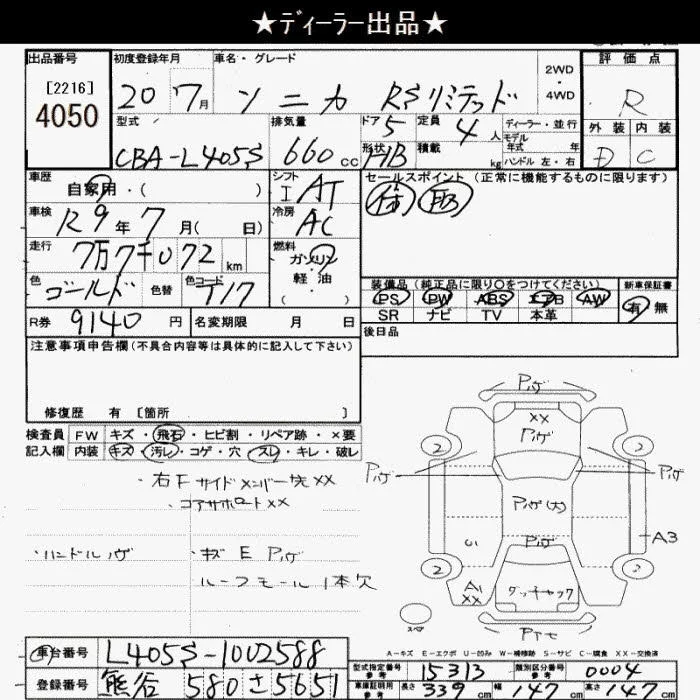 ★ディーラー出品★
出品番号 初度登録年月 車名・グレード 2WD・4WD 評価点
[2216]
4050
20 7月 ソニカ RSリミテッド R
型式 排気量 ドア 5 定員 4人 ディーラー・並行 外装 内装
モデル年式 年
CBA-L405S 660cc 形状 HB 積載 kg ハンドル 左・右 D C
車歴 自家用・( ) シフト I AT セールスポイント (正常に機能するものに限ります)
車検 R9年7月( 日) 冷房 AC
走行 7万7千072km 燃料 ガソリン・軽油
色 ゴールド 色替 色コード T17 装備品 (純正品に限り○をつけてください) 新車保証書
PS PW ABS エアB AW 有 無
SR ナビ TV 本革
R券 9140円 名変期限 月 日 後日品
注意事項申告欄 (不具合内容等は具体的に記入して下さい)
修復歴 有 [箇所 ]
検査員 FW キズ・飛石・ヒビ割・リペア跡・×要
記入欄 内装 キズ・汚レ・コゲ・穴・スレ・キレ・破レ
・右Fサイドメンバー先XX
・コアサポートXX
・ハンドル ハゲ ・キズ E Pハゲ
ルーフモール1本欠
Pハゲ
XX
Pハゲ
2 2
Pハゲ Pハゲ
Pハゲ(大)
Pハゲ
A3
2 2
A1
XX
スペア
A-キズ E-エクボ U-凹み W-補修跡 S-サビ C-腐食 XX-交換済
車台番号 L405S-1002588
型式指定番号 参考 15313 類別区分番号 参考 0004
登録番号 熊谷 580 さ 5651
車庫証明用 参考 長さ 339cm 幅 147cm 高さ 147cm